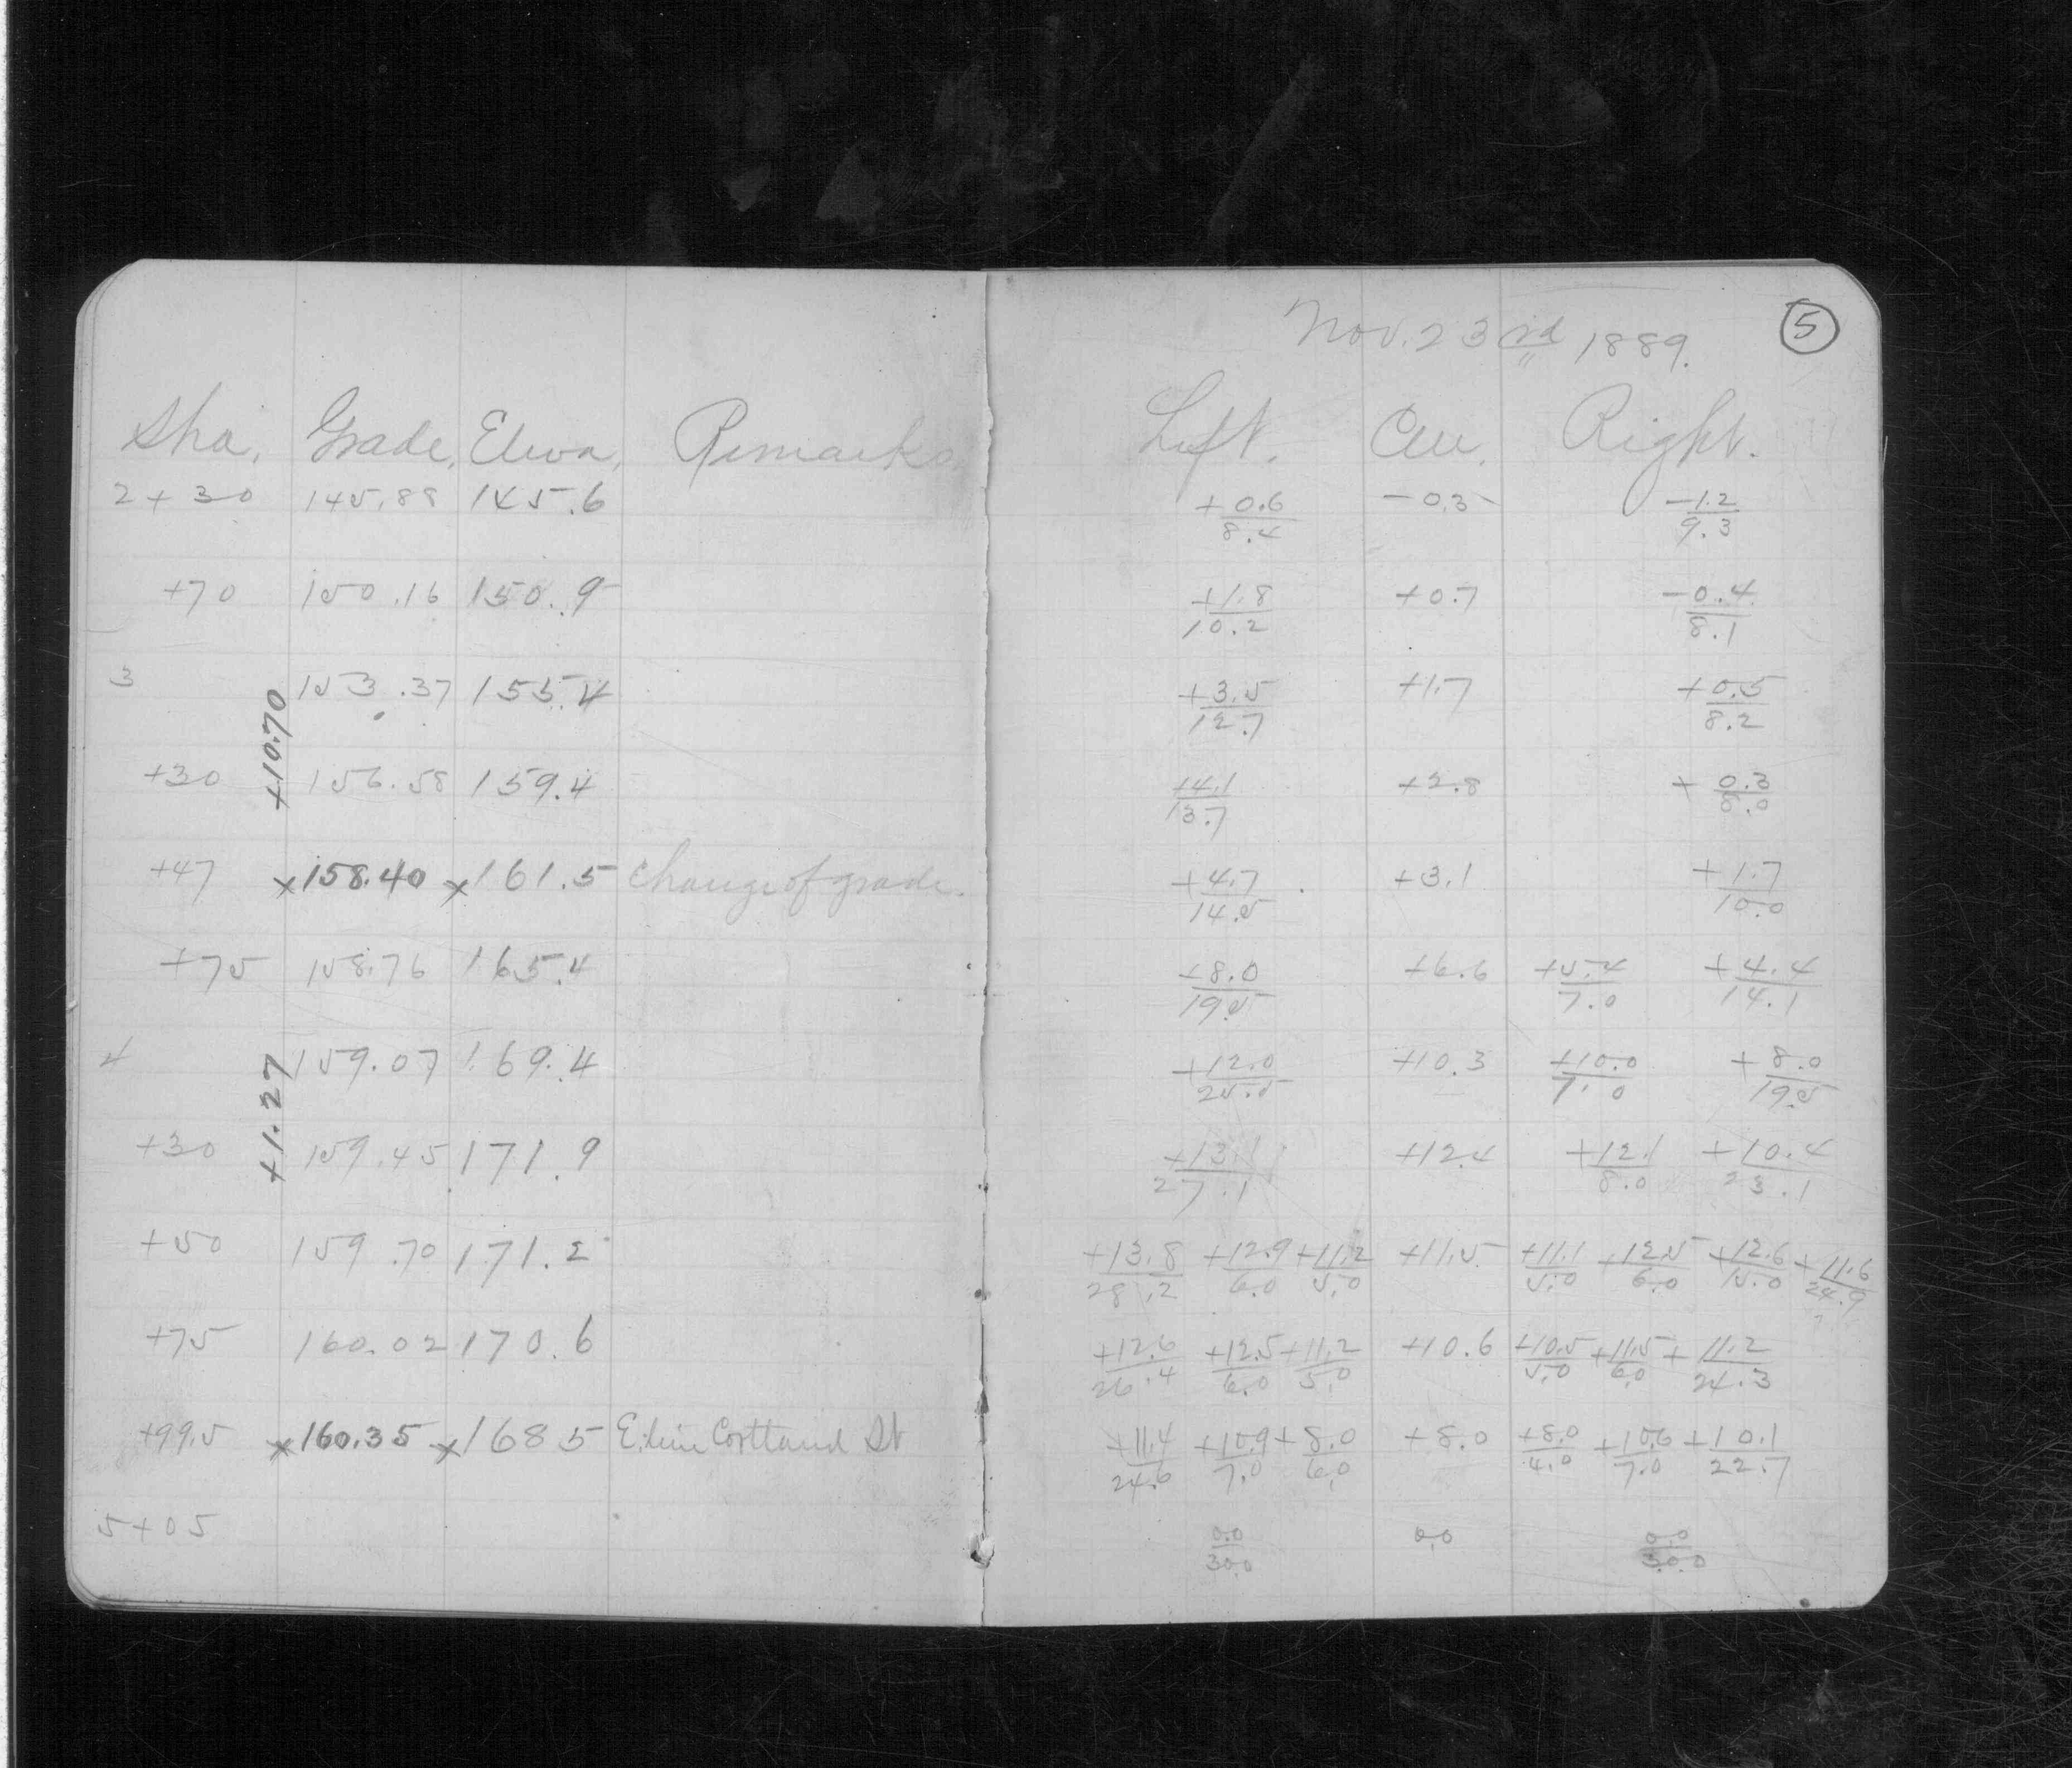 Nov. 23rd 1889.
5
Sta. Grade. Eleva. Remarks. Left. Cen. Right.
2+30 145.88 145.6 +0.6/8.4 -0.3 -1.2/9.3
+70 150.16 150.9 +1.8/10.2 +0.7 -0.4/8.1
3 153.37 155.4 +3.5/12.7 +1.7 +0.5/8.2
+10.70
+30 156.58 159.4 +4.1/13.7 +2.8 +0.3/8.0
+47 x158.40 x161.5 Change of grade. +4.7/14.5 +3.1 +1.7/10.0
+75 158.76 165.4 +8.0/19.5 +6.6 +5.4/7.0 +4.4/14.1
4 159.07 169.4 +12.0/25.5 +10.3 +10.0/7.0 +8.0/19.5
+1.27
+30 159.45 171.9 +13.1/27.1 +12.4 +12.1/8.0 +10.4/23.1
+50 159.70 171.2 +13.8/28.2 +12.9/6.0 +11.2/5.0 +11.5 +11.1/5.0 +12.5/6.0 +12.6/15.0 +11.6/24.9
+75 160.02 170.6 +12.6/26.4 +12.5/6.0 +11.2/5.0 +10.6 +10.5/5.0 +11.5/6.0 +11.2/24.3
+99.5 x160.35 x168.5 E. line Cortland St +11.4/24.6 +10.9/7.0 +8.0/6.0 +8.0 +8.0/4.0 +10.6/7.0 +10.1/22.7
5+05 0.0/30.0 0.0 0.0/30.0